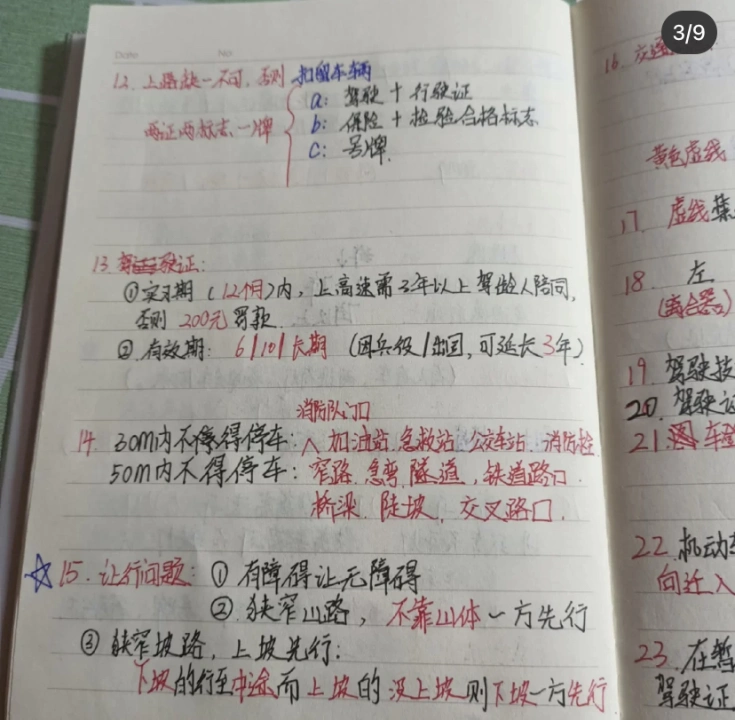 3/9
Date
No.
12. 上路缺一不可,否则 扣留车辆
两证两标志一牌
a: 驾驶 + 行驶证
b: 保险 + 检验合格标志
c: 号牌.
13. 驾驶证:
① 实习期(12个月)内,上高速需3年以上驾龄人陪同,
否则 200元 罚款.
② 有效期: 6/10/长期 (因兵役/出国,可延长3年)
消防队门口
14. 30m内不得停车: 加油站.急救站.公交车站.消防栓
50m内不得停车: 窄路.急弯.隧道,铁道路口.
桥梁.陡坡.交叉路口.
15. 让行问题: ① 有障碍让无障碍
② 狭窄山路,不靠山体一方先行
③ 狭窄坡路,上坡先行:
下坡的行至中途而上坡的没上坡则下坡一方先行
16. 交通
黄色虚线
17. 虚线
18. 左
(离合器)
19. 驾驶技
20. 驾驶证
21. 车
22. 机动车
向迁入
23. 在暂
驾驶证